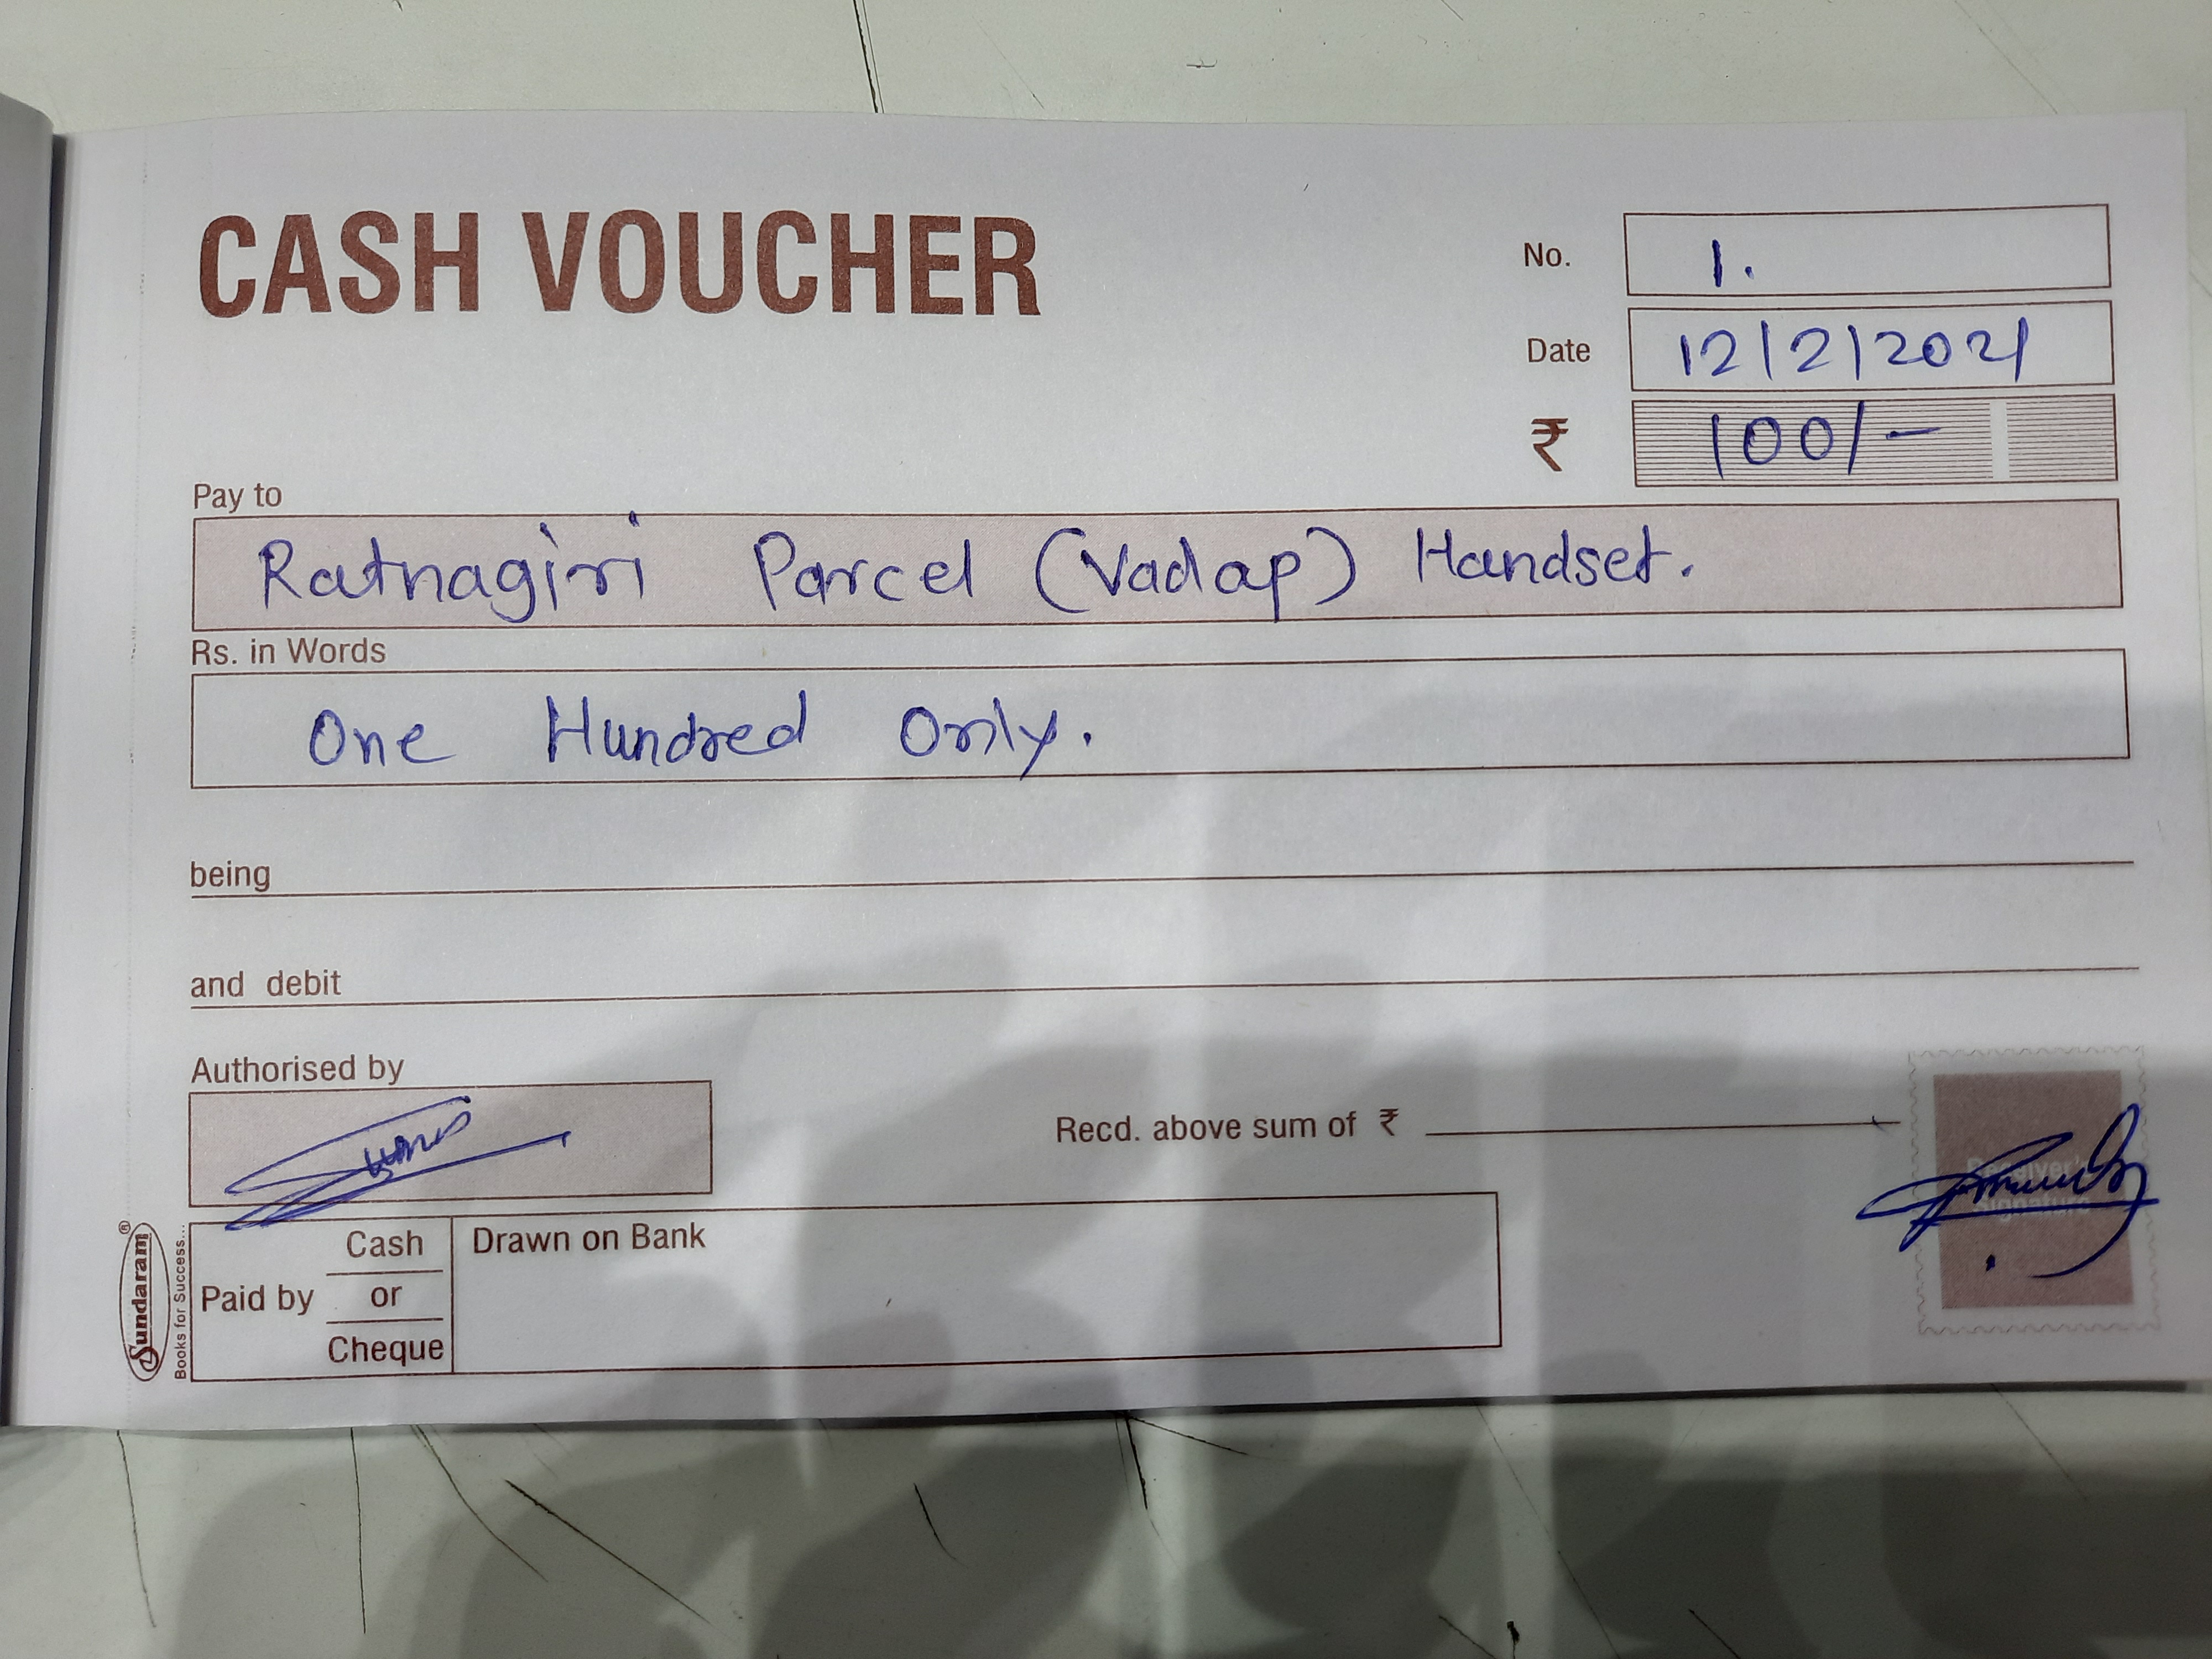 CASH VOUCHER
No. 1.
Date 12/2/2021
₹ 100/-
Pay to
Ratnagiri Parcel (Vadap) Handset.
Rs. in Words
One Hundred Only.
being
and debit
Authorised by
Recd. above sum of ₹
Paid by Cash or Cheque
Drawn on Bank
Sundaram®
Books for Success...